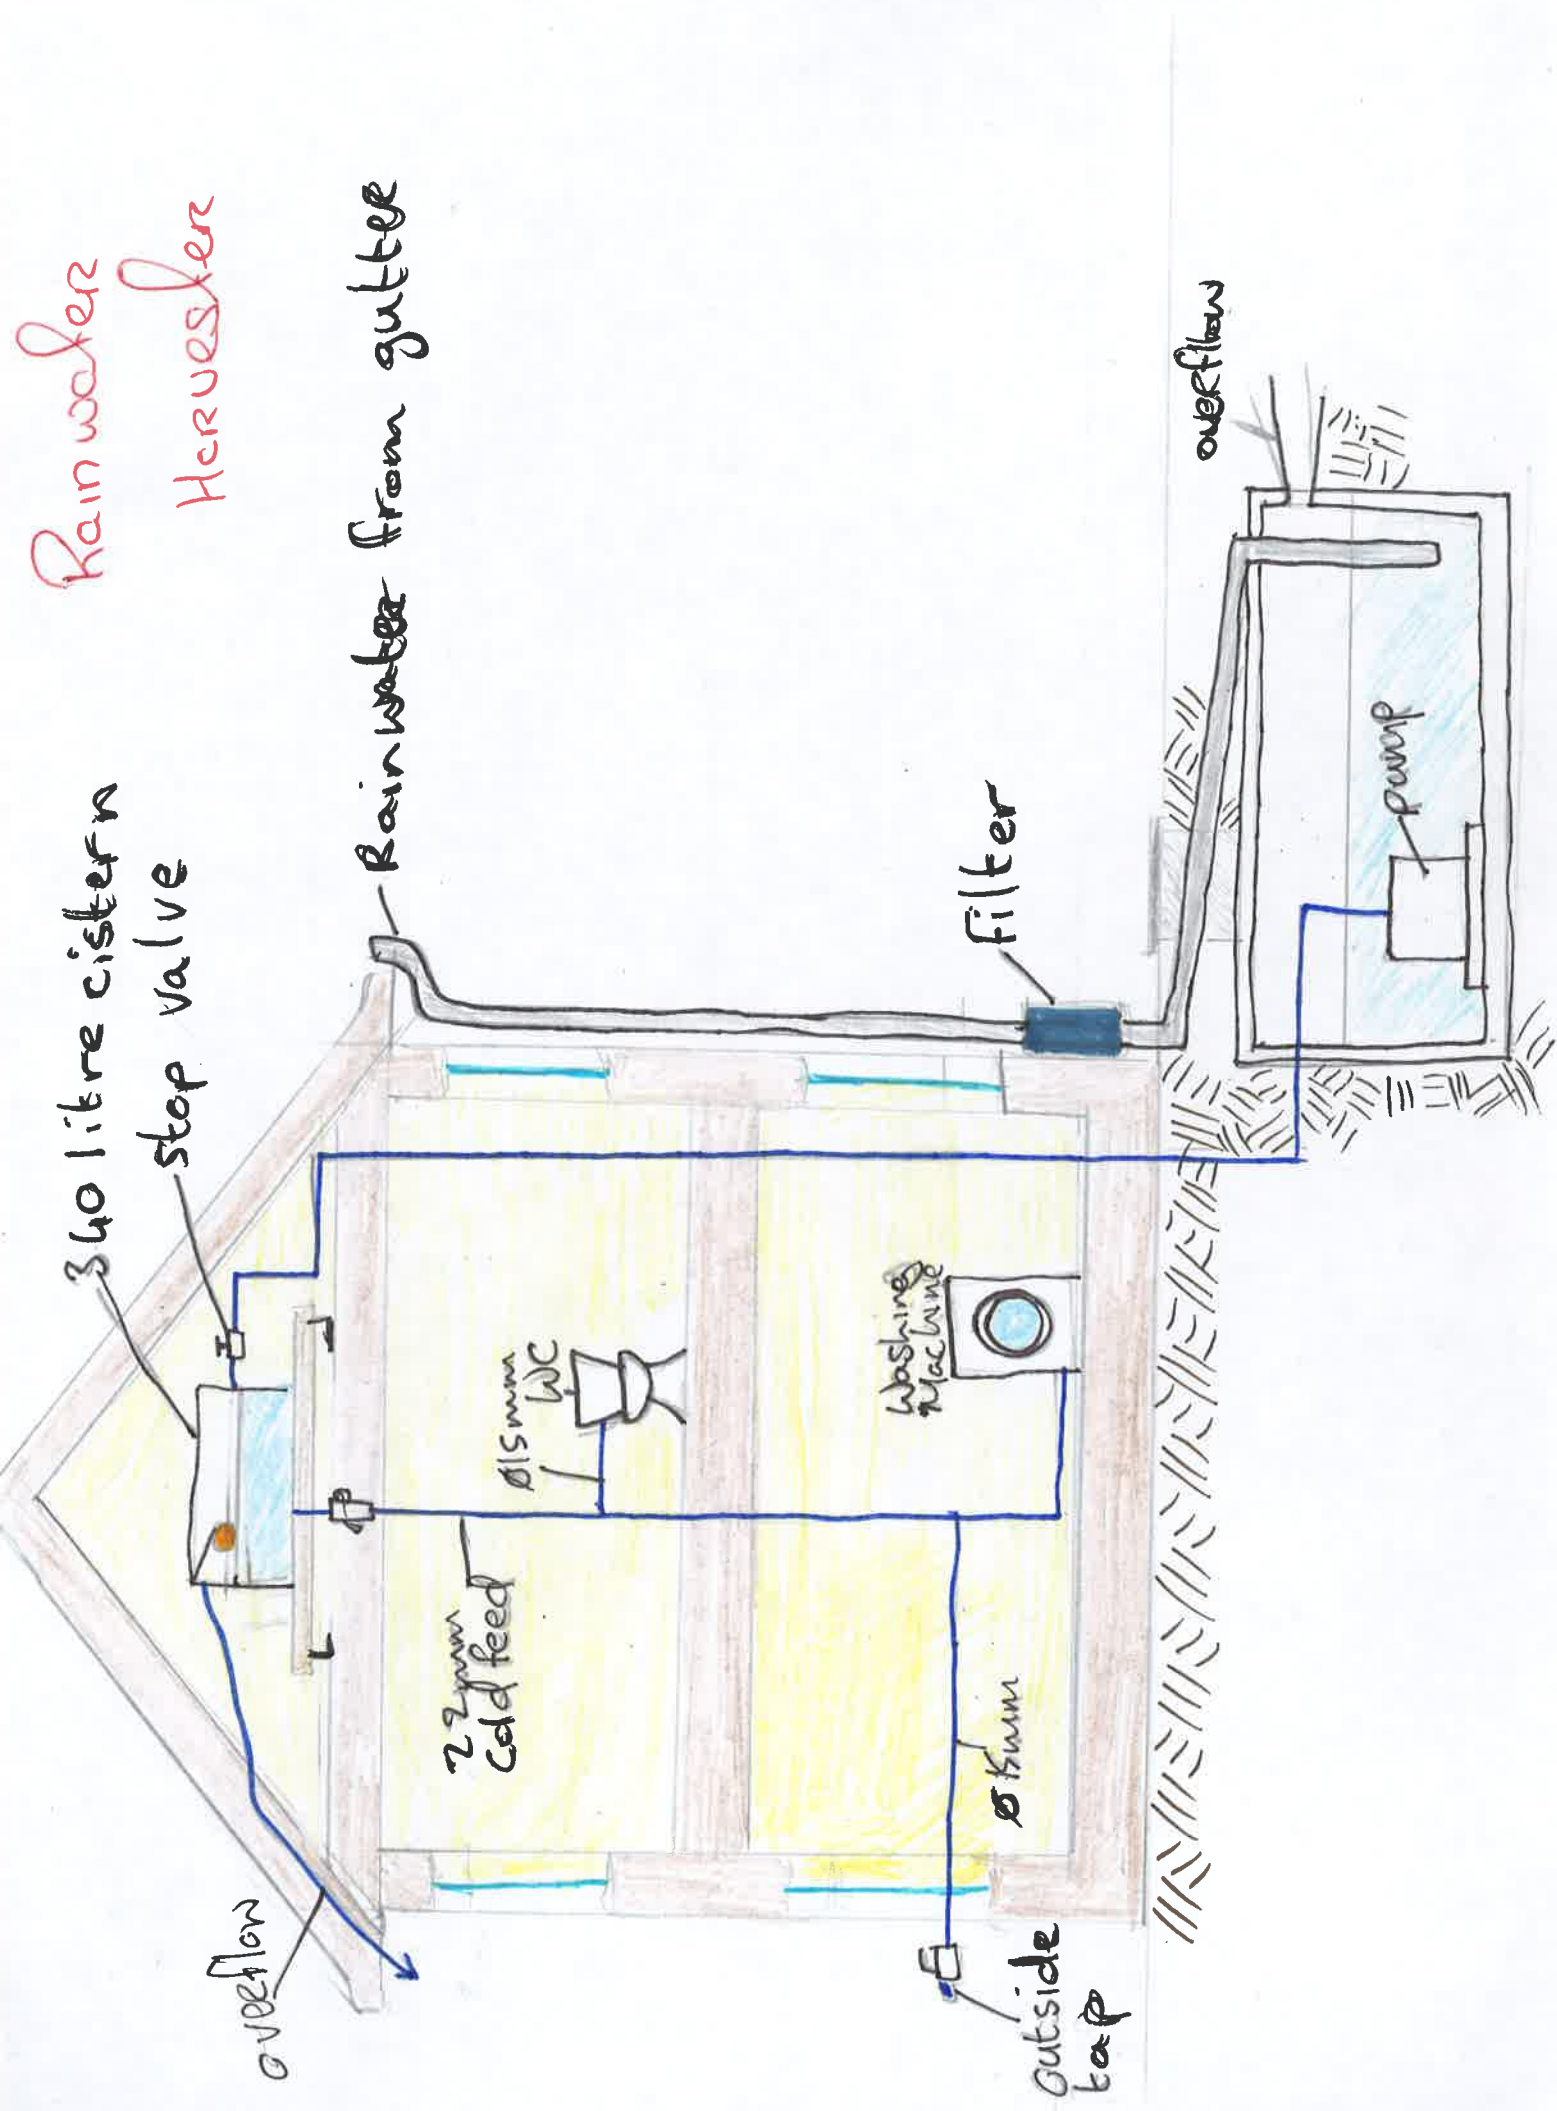 Rainwater
Harvester
340 litre cistern
stop valve
Rainwater from gutter
overflow
22mm
Cold feed
Ø15mm
WC
Washing
Machine
Filter
Ø15mm
outside
tap
overflow
pump